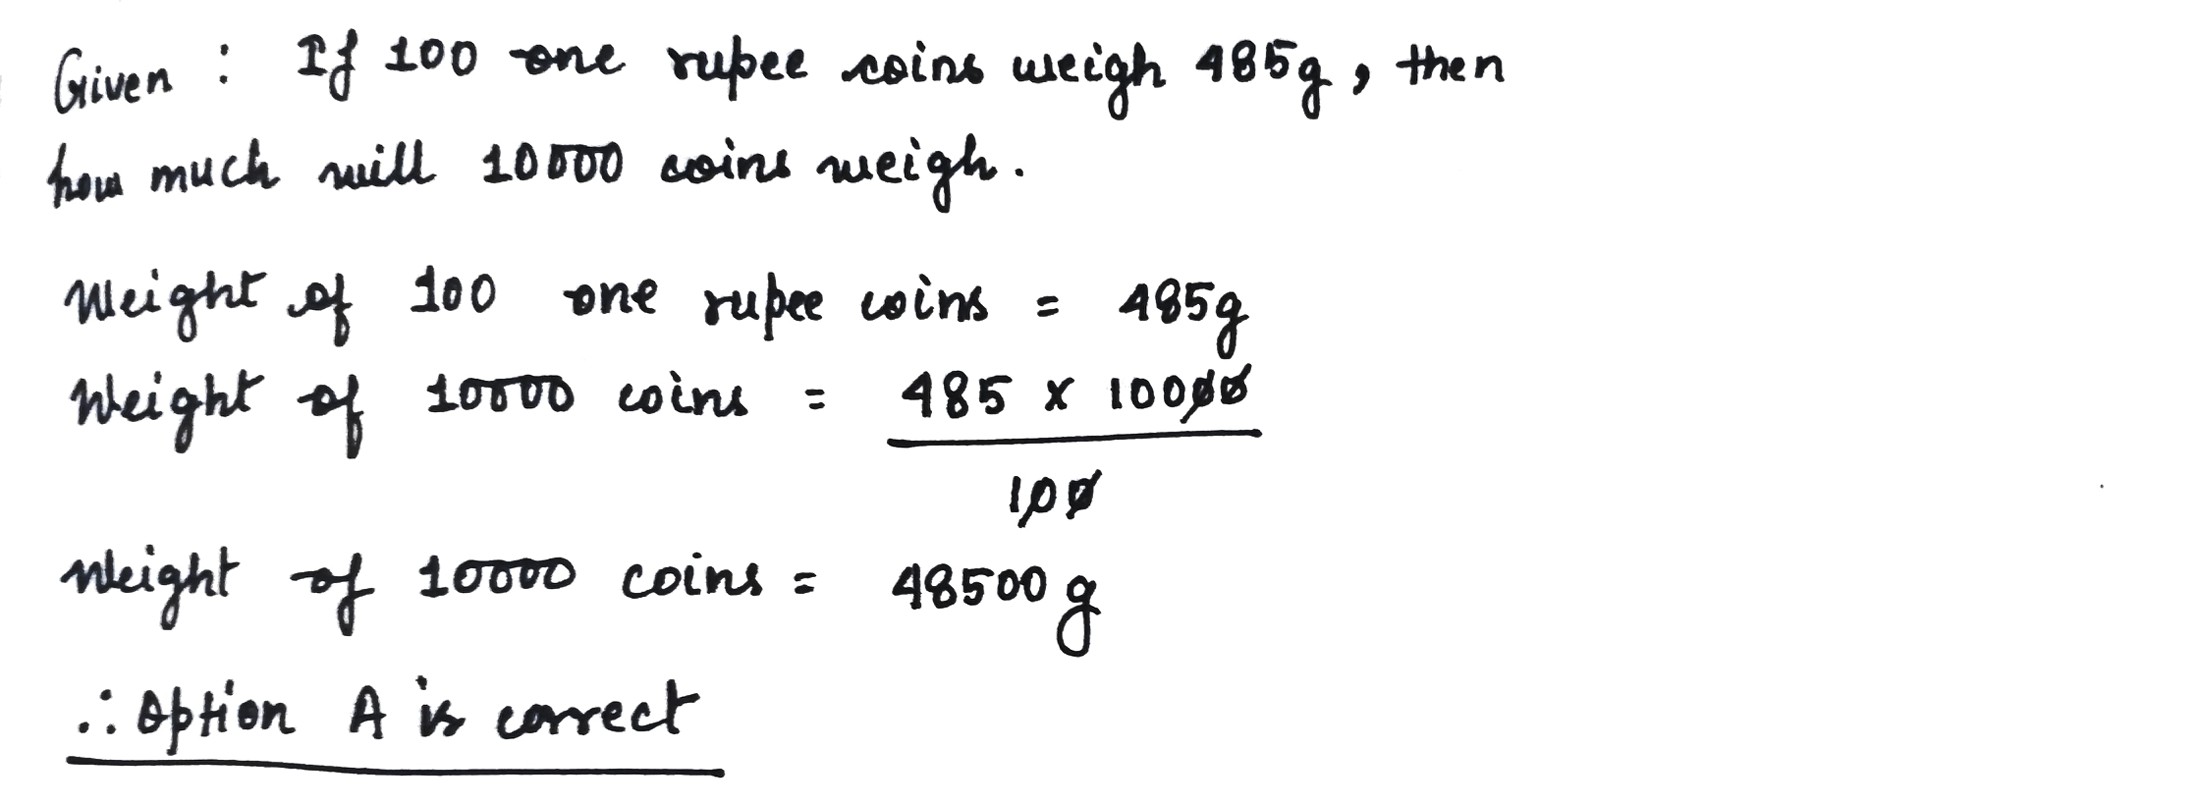 Given : If 100 one rupee coins weigh 485g, then
how much will 10000 coins weigh.
Weight of 100 one rupee coins = 485g
Weight of 10000 coins = 485 x 10000
100
Weight of 10000 coins = 48500 g
∴ Option A is correct